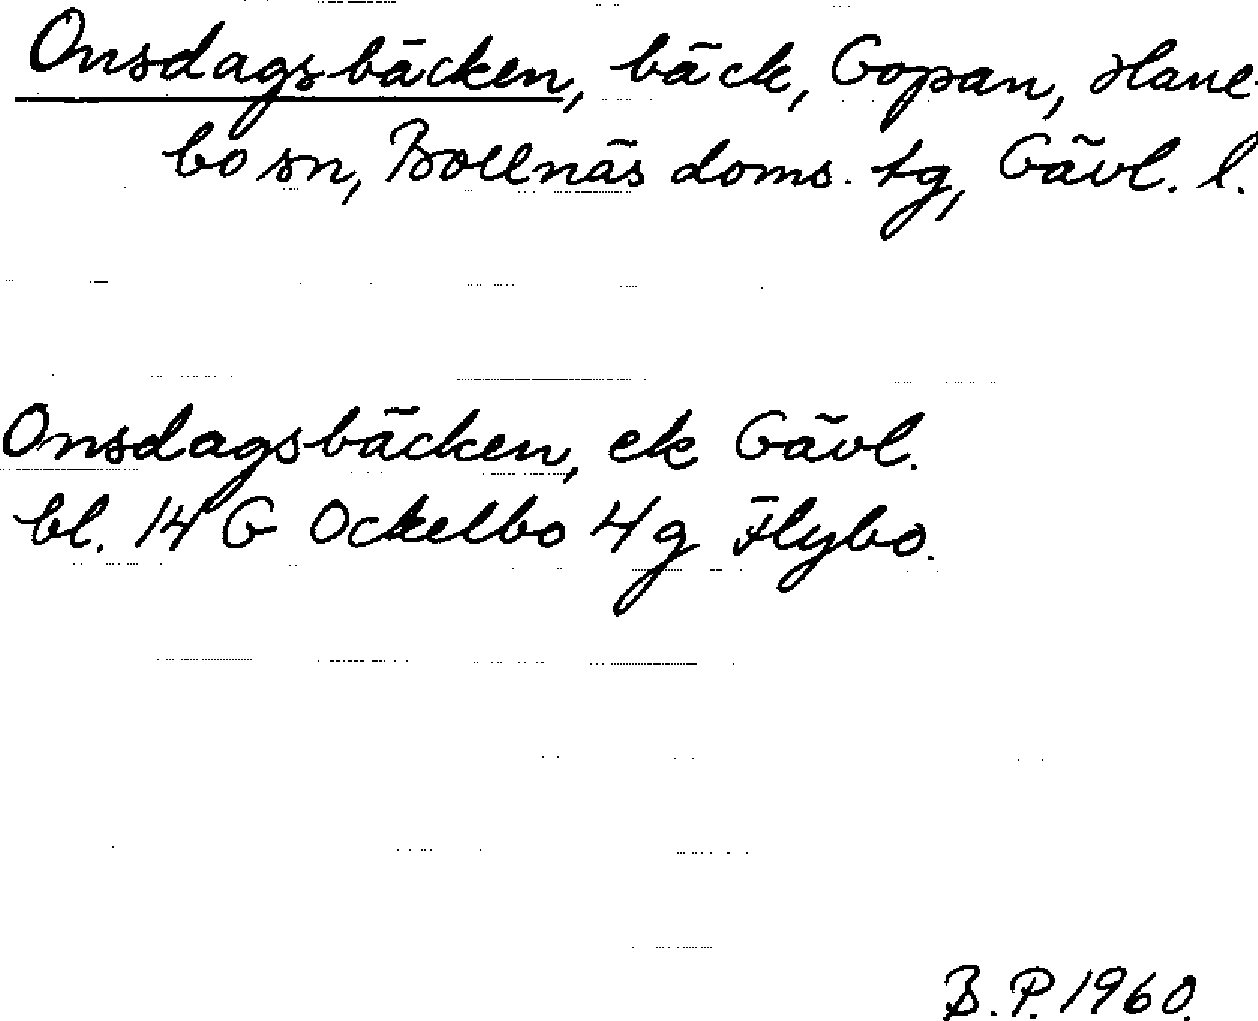 Onsdagsbäcken, bäck, Gopan, Hane-
bo sn, Bollnäs doms. tg, Gävl. l.
Onsdagsbäcken, ek Gävl.
bl. 14 G Ockelbo 4g Flybo.
B.P. 1960.